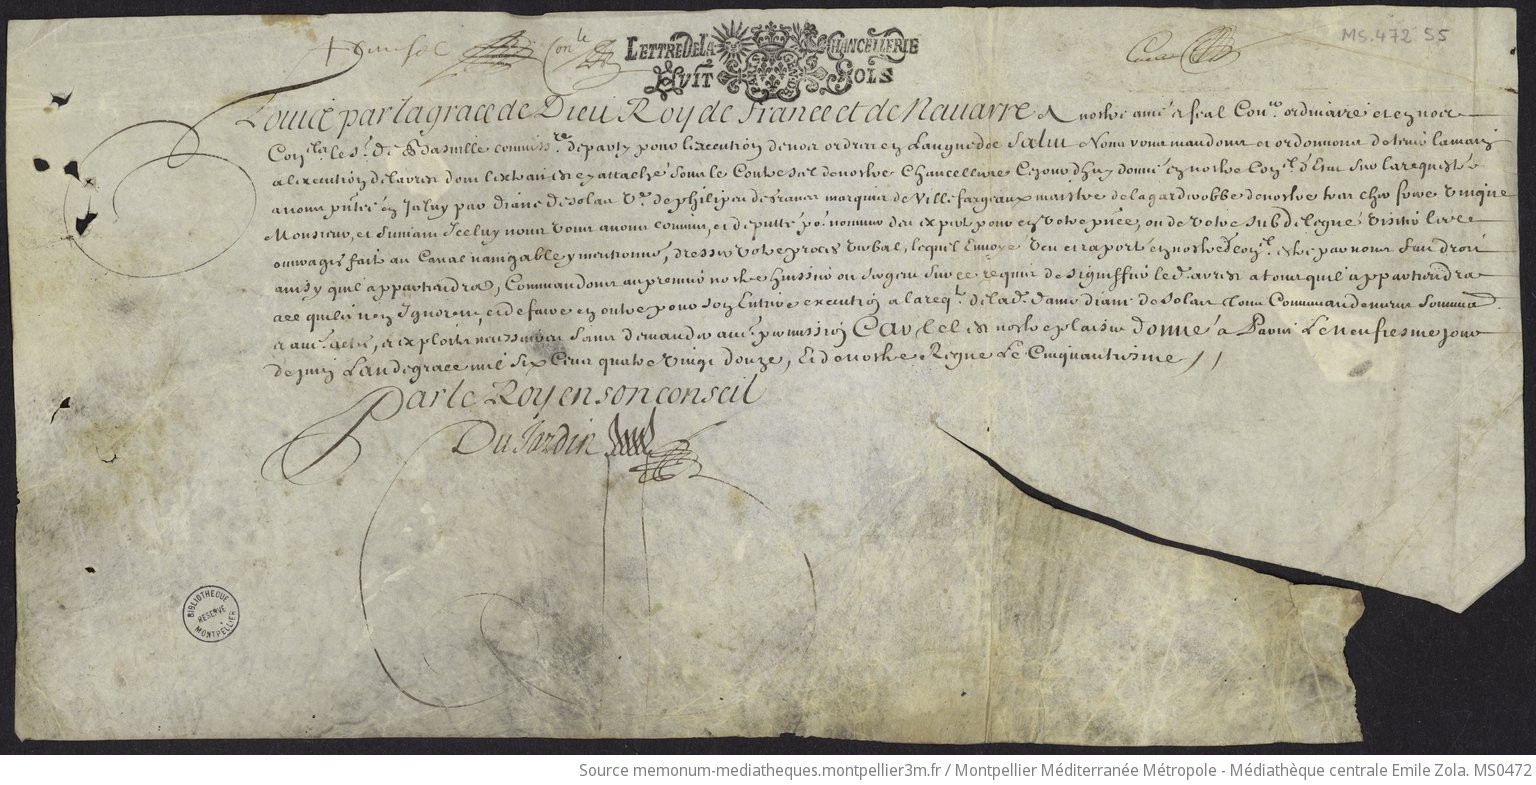 LETTRE DE LA CHANCELLERIE
HVIT SOLS
MS.472 55
Louis par la grace de Dieu Roy de France et de Nauarre A nostre amé et feal Con.er ordinaire et en noz
Con.les le s.r de Basuille commiss.re departy pour lexecution de noz ordres en Languedoc Salut Nous vous mandons et ordonnons de tenir la main
a lexecution de larrest dont lextrait est cy attaché sous le Contre scel de nostre Chancellerie Cejourdhuy donné en nostre Con.el d'Estat sur la requeste
a nous p'ntée en Iceluy par Diane de Solas V.e de philipes de france marquis de Villefargeaux maistre de la garderobbe de nostre tres cher frere Vnique
Monsieur, et suiuant Iceluy nous vous auons commis, et deputté po.r nommer des expertz pour en votre p'nce, ou de votre subdelegué visiter les
ouurages faits au Canal nauigable y mentionné, dresser votre procés verbal, lequel Enuoyé Veu et raporté en nostred. Con.el estre par nous fait droit
ainsy quil appartiendra, Commandons au premier nostre huissier ou sergent sur ce requis de signiffier led. arrest a tous quil appartiendra
ace quils nen Ignorent, et de faire en outre pour son Entiere execution a la req.te de lad. dame diane de Solas Tous Commandemens sommaõns
et au.es actes, et exploits necessaires sans demander au.e permission Car tel est nostre plaisir donné a Paris Le neufiesme jour
de juin Lan de grace mil six Cens quatre vingt douze, Et de nostre Regne Le Cinquantiesme
Par le Roy en son conseil
Du Jardin
BIBLIOTHEQUE
RESERVE
MONTPELLIER
Source memonum-mediatheques.montpellier3m.fr / Montpellier Méditerranée Métropole - Médiathèque centrale Emile Zola. MS0472